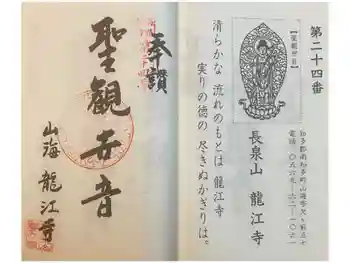 第二十四番
知多郡南知多町山海
電話
長泉山 龍江寺
清らかな 流れのもとは 龍江寺
実りの徳の 尽きぬかぎりは。
奉讃
聖観世音
山海 龍江寺